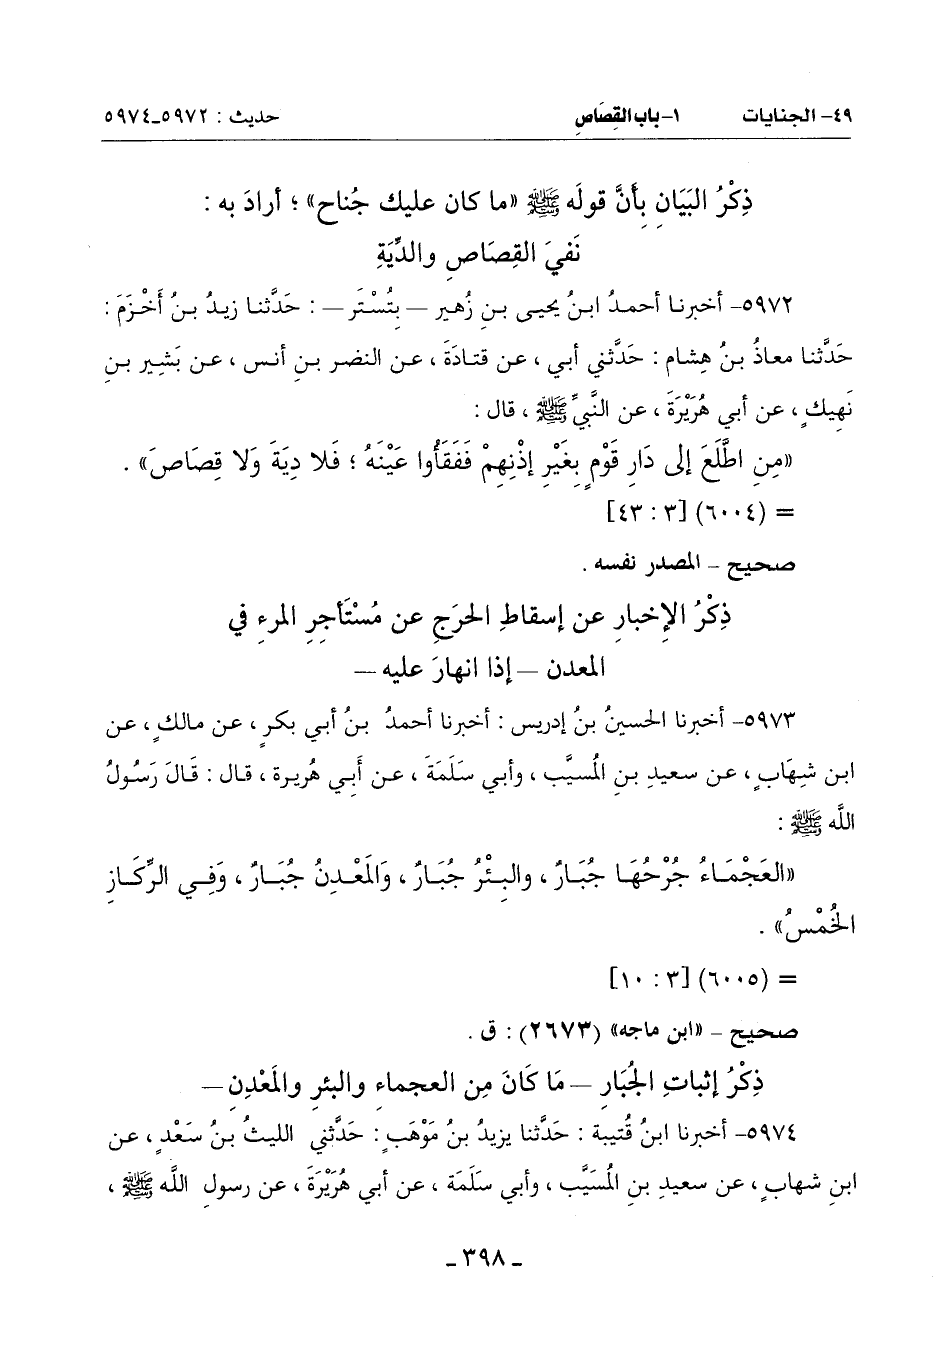 ٤٩- الجنايات ١- باب القِصَاصِ حديث : ٥٩٧٢-٥٩٧٤
ذِكْرُ البَيَانِ بِأَنَّ قولَه ﷺ «ما كان عليك جُناح» ؛ أرادَ به :
نَفيَ القِصَاصِ والدِّيَةِ
٥٩٧٢- أخبرنا أحمدُ ابنُ يحيى بنِ زُهيرِ – بِتُسْتَرَ – : حَدَّثنا زيدُ بنُ أَخْزَمَ :
حَدَّثنا معاذُ بنُ هِشام : حَدَّثني أبي ، عن قتادَةَ ، عن النضرِ بنِ أنس ، عن بَشيرِ بنِ
نَهيكٍ ، عن أبي هُرَيْرَةَ ، عن النَّبيِّ ﷺ ، قال :
«مِنِ اطَّلَعَ إلى دَارِ قَوْمٍ بِغَيْرِ إذْنِهِمْ فَفَقَأُوا عَيْنَهُ ؛ فَلا دِيَةَ وَلا قِصَاصَ» .
= (٦٠٠٤) [٣ : ٤٣]
صحيح - المصدر نفسه .
ذِكْرُ الإخبارِ عن إسقاطِ الحرَجِ عن مُسْتَأجِرِ المرءِ في
المعدن – إذا انهارَ عليه –
٥٩٧٣- أخبرنا الحسينُ بنُ إدريس : أخبرنا أحمدُ بنُ أبي بكرٍ ، عن مالكٍ ، عن
ابن شِهَابٍ ، عن سعيدِ بنِ المُسيَّب ، وأبي سَلَمَةَ ، عن أَبي هُريرة ، قال : قَالَ رَسُولُ
اللَّه ﷺ :
«العَجْمَاءُ جُرْحُهَا جُبَارٌ ، والبِئْرُ جُبَارٌ ، وَالمَعْدِنُ جُبَارٌ ، وَفِي الرِّكَازِ
الخُمْسُ» .
= (٦٠٠٥) [٣ : ١٠]
صحيح - «ابن ماجه» (٢٦٧٣) : ق .
ذِكْرُ إثباتِ الجُبَارِ – مَا كَانَ مِن العجماءِ والبئرِ والمَعْدِنِ –
٥٩٧٤- أخبرنا ابنُ قُتيبة : حَدَّثنا يزيدُ بنُ مَوْهَبٍ : حَدَّثني الليثُ بنُ سَعْدٍ ، عن
ابنِ شهابٍ ، عن سعيدِ بنِ المُسَيَّب ، وأبي سَلَمَة ، عن أبي هُرَيْرَةَ ، عن رسولِ اللَّه ﷺ ،
- ٣٩٨ -